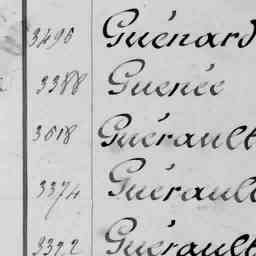 3490 Guénard
3388 Guenée
3618 Guérault
3374 Guérault
3372 Guérault